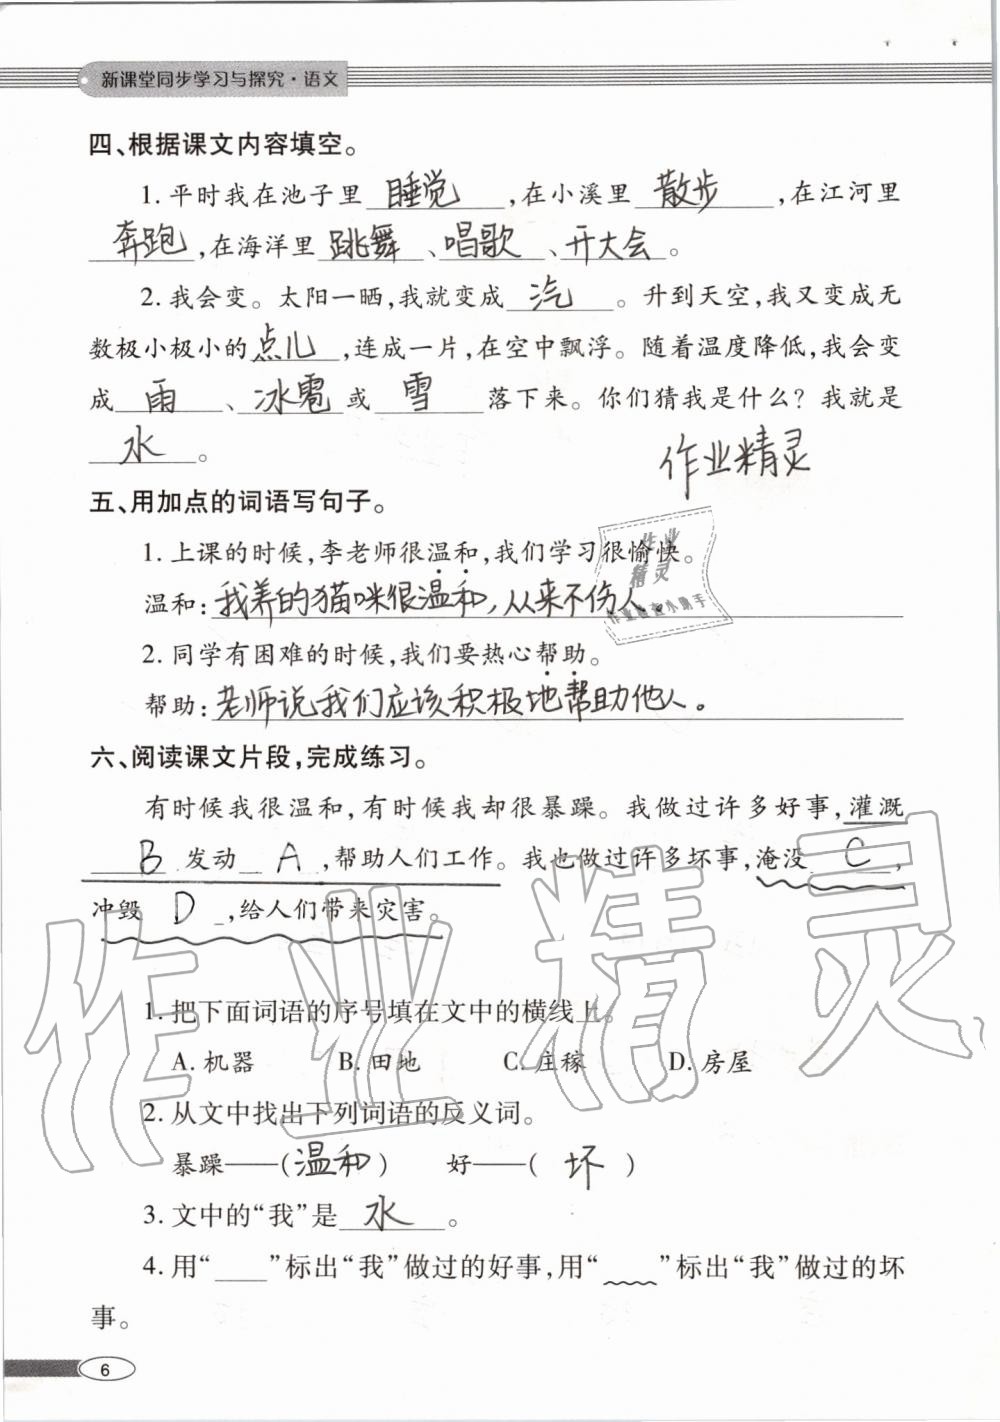 新课堂同步学习与探究·语文
四、根据课文内容填空。
1.平时我在池子里 睡觉 ,在小溪里 散步 ,在江河里
奔跑 ,在海洋里 跳舞 、唱歌 、开大会 。
2.我会变。太阳一晒,我就变成 汽 。升到天空,我又变成无
数极小极小的 点儿 ,连成一片,在空中飘浮。随着温度降低,我会变
成 雨 、冰雹 或 雪 落下来。你们猜我是什么?我就是
水 。
作业精灵
五、用加点的词语写句子。
1.上课的时候,李老师很温和,我们学习很愉快。
温和:我养的猫咪很温和,从来不伤人。
2.同学有困难的时候,我们要热心帮助。
帮助:老师说我们应该积极地帮助他人。
作业
精灵
作业检查小助手
六、阅读课文片段,完成练习。
有时候我很温和,有时候我却很暴躁。我做过许多好事,灌溉
B 发动 A ,帮助人们工作。我也做过许多坏事,淹没 C ,
冲毁 D ,给人们带来灾害。
作业精灵
1.把下面词语的序号填在文中的横线上。
A.机器 B.田地 C.庄稼 D.房屋
2.从文中找出下列词语的反义词。
暴躁——(温和) 好——( 坏 )
3.文中的“我”是 水 。
4.用“____”标出“我”做过的好事,用“﹏﹏”标出“我”做过的坏
事。
6